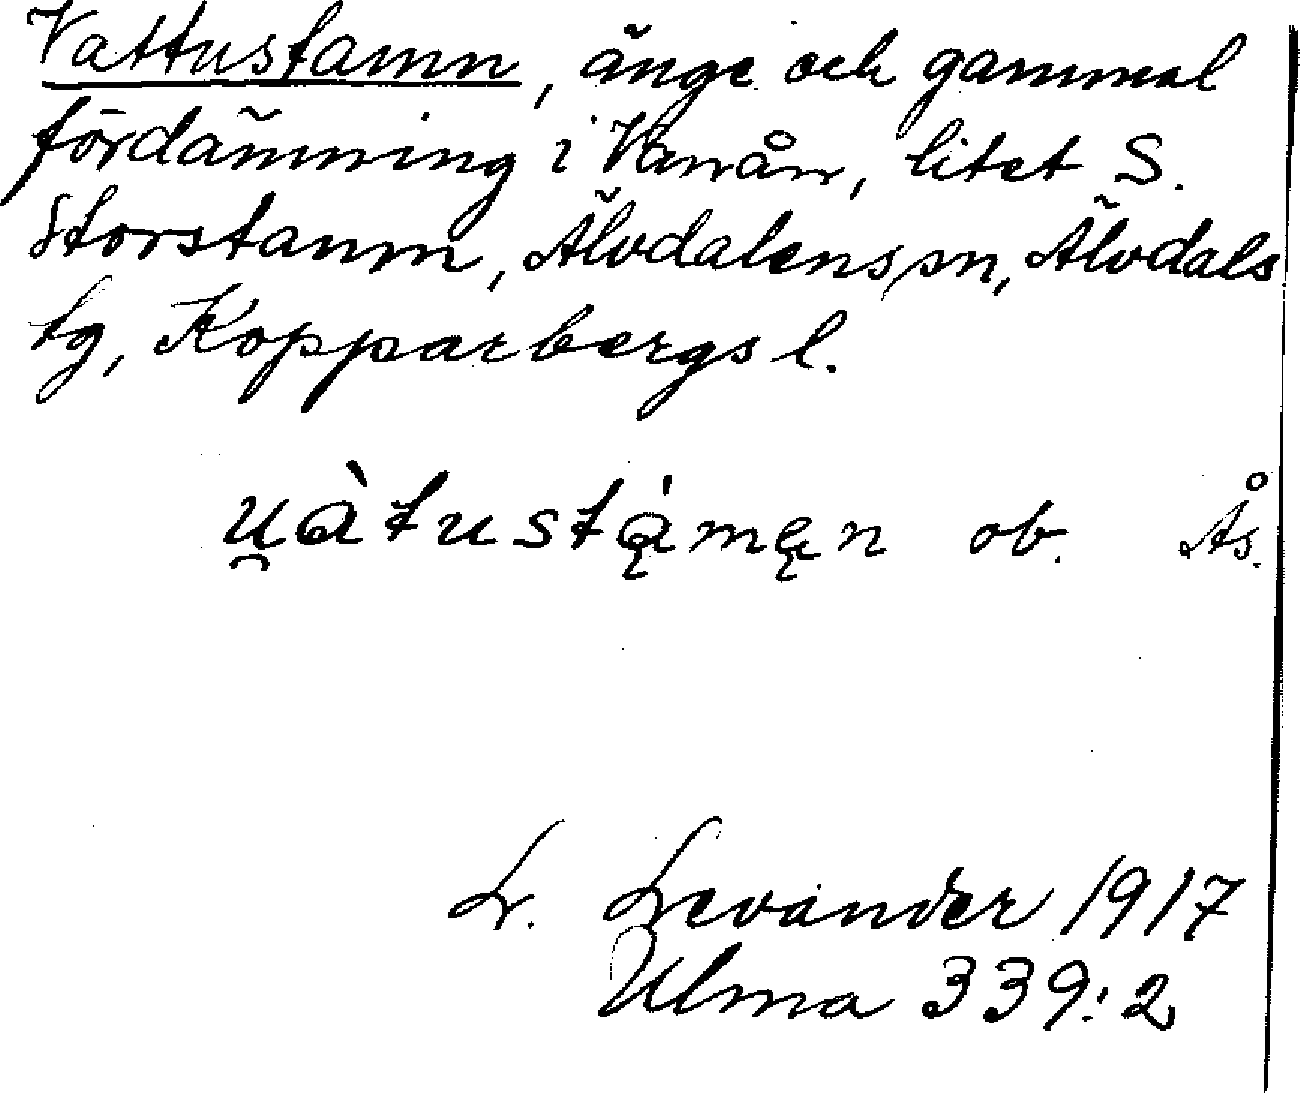 Vattustamn, änge och gammal
fördämning i Vanån, litet S.
Storstamm, Älvdalens sn, Älvdals
tg, Kopparbergs l.
u̯àtustą́męn ob. Ås.
L. Levander 1917
Ulma 339:2